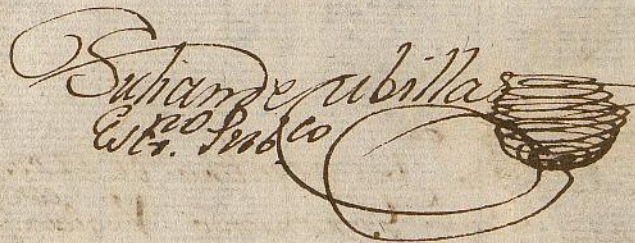 Julian de Cubillas
Esno. Pubco